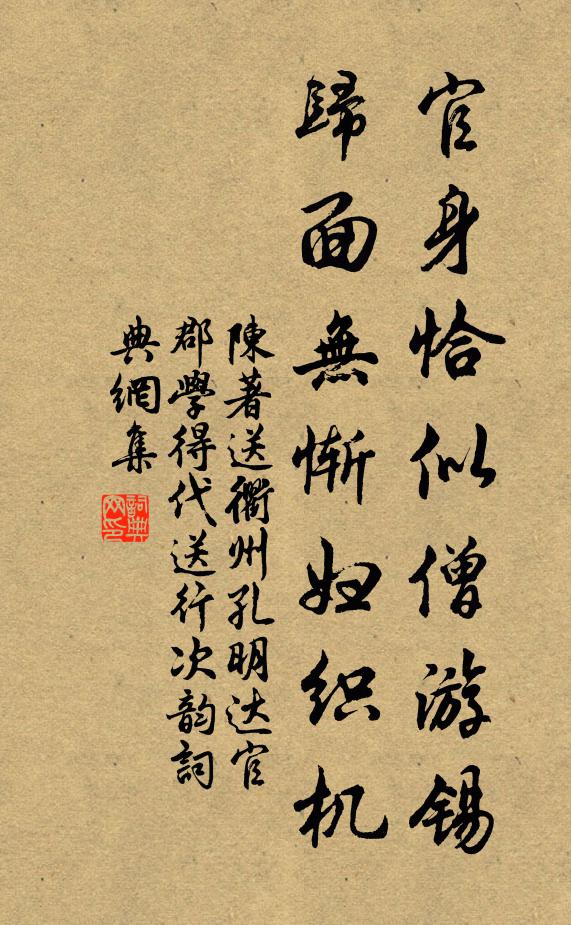 官身恰似僧游錫
歸面無慚妇织机
陳著送衢州孔明达官
郡學得代送行次韵詞
典網集
詞典网印